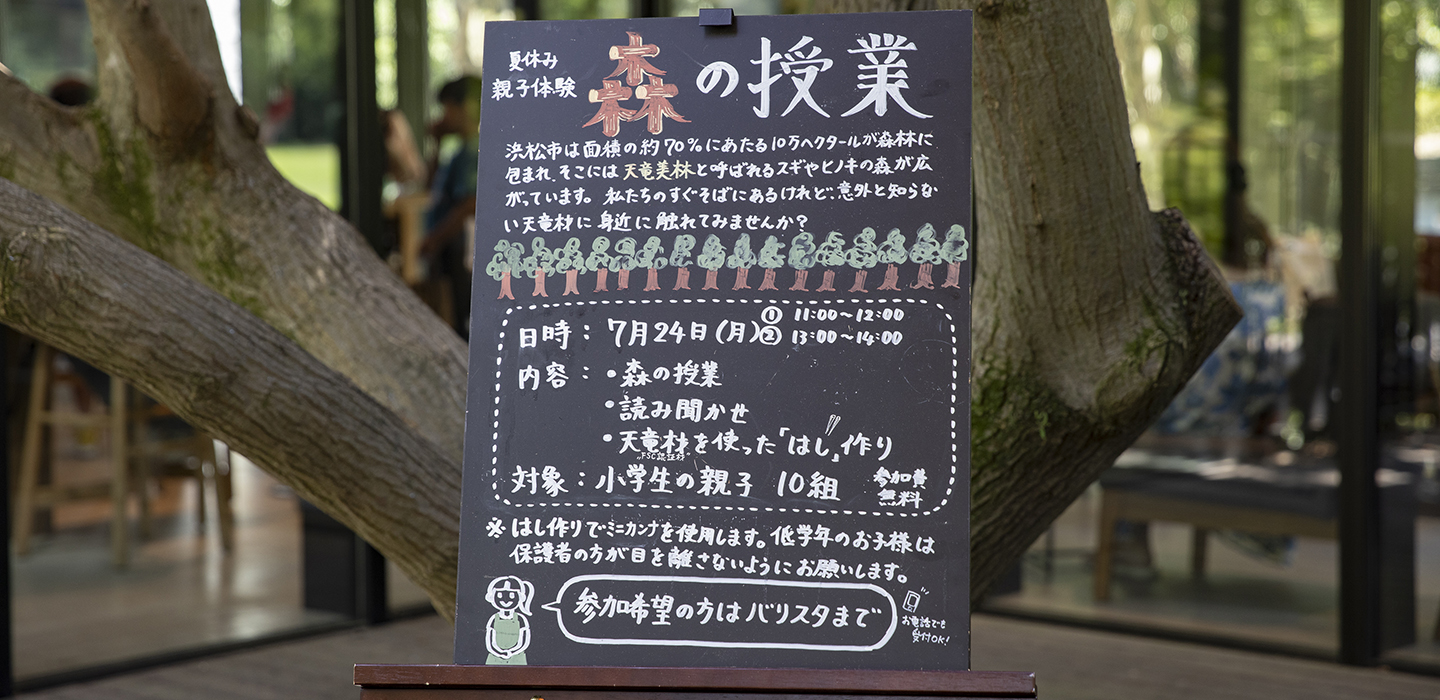 夏休み
親子体験
森の授業
浜松市は面積の約70%にあたる10万ヘクタールが森林に
包まれ、そこには天竜美林と呼ばれるスギやヒノキの森が広
がっています。私たちのすぐそばにあるけれど、意外と知らな
い天竜材に身近に触れてみませんか?
日時:7月24日(月)① 11:00~12:00
② 13:00~14:00
内容:・森の授業
・読み聞かせ
・天竜材を使った「はし」作り
FSC認証材
対象:小学生の親子 10組
参加費
無料
※はし作りでミニカンナを使用します。低学年のお子様は
保護者の方が目を離さないようにお願いします。
参加希望の方はバリスタまで
お電話でも
受付OK!